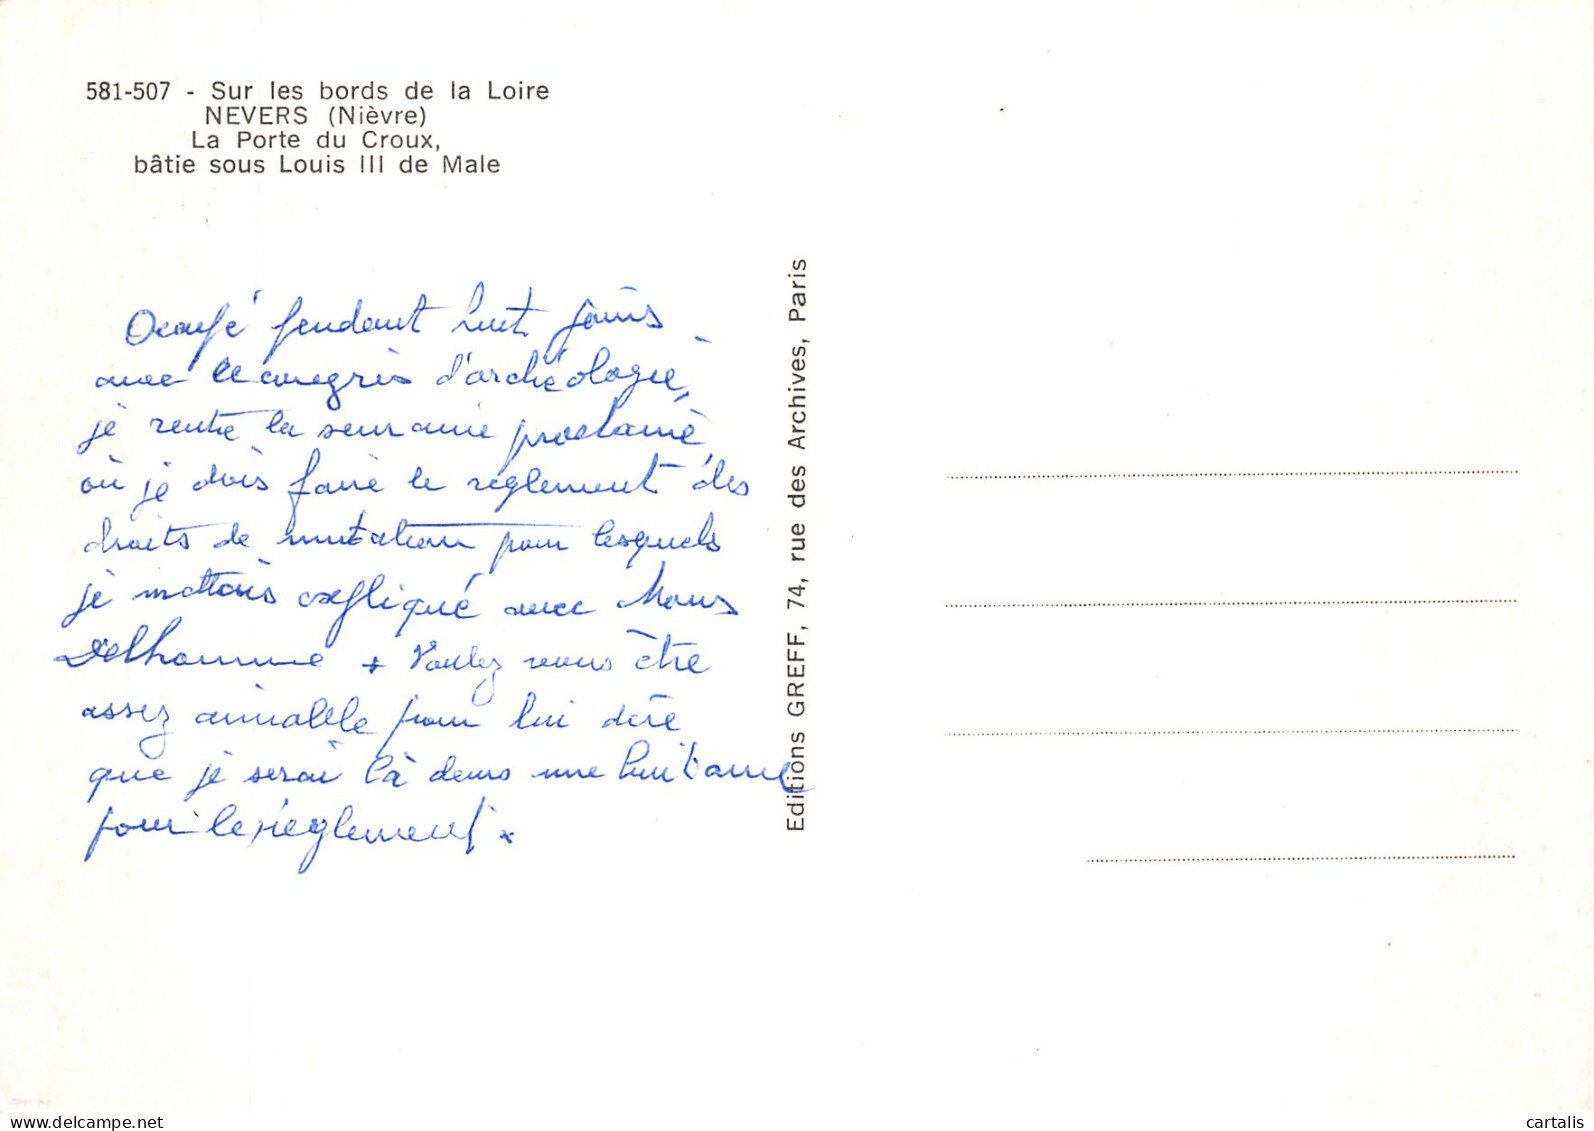 581-507 - Sur les bords de la Loire
NEVERS (Nièvre)
La Porte du Croux,
bâtie sous Louis III de Male
Occupé pendant huit jours
avec le congrès d'archéologie,
je rentre la semaine prochaine
où je dois faire le règlement des
droits de mutation pour lesquels
je m'étais expliqué avec Mons
Delhomme. Voulez vous être
assez aimable pour lui dire
que je serai là dans une huitaine
pour le règlement.
Editions GREFF, 74, rue des Archives, Paris
www.delcampe.net
cartalis